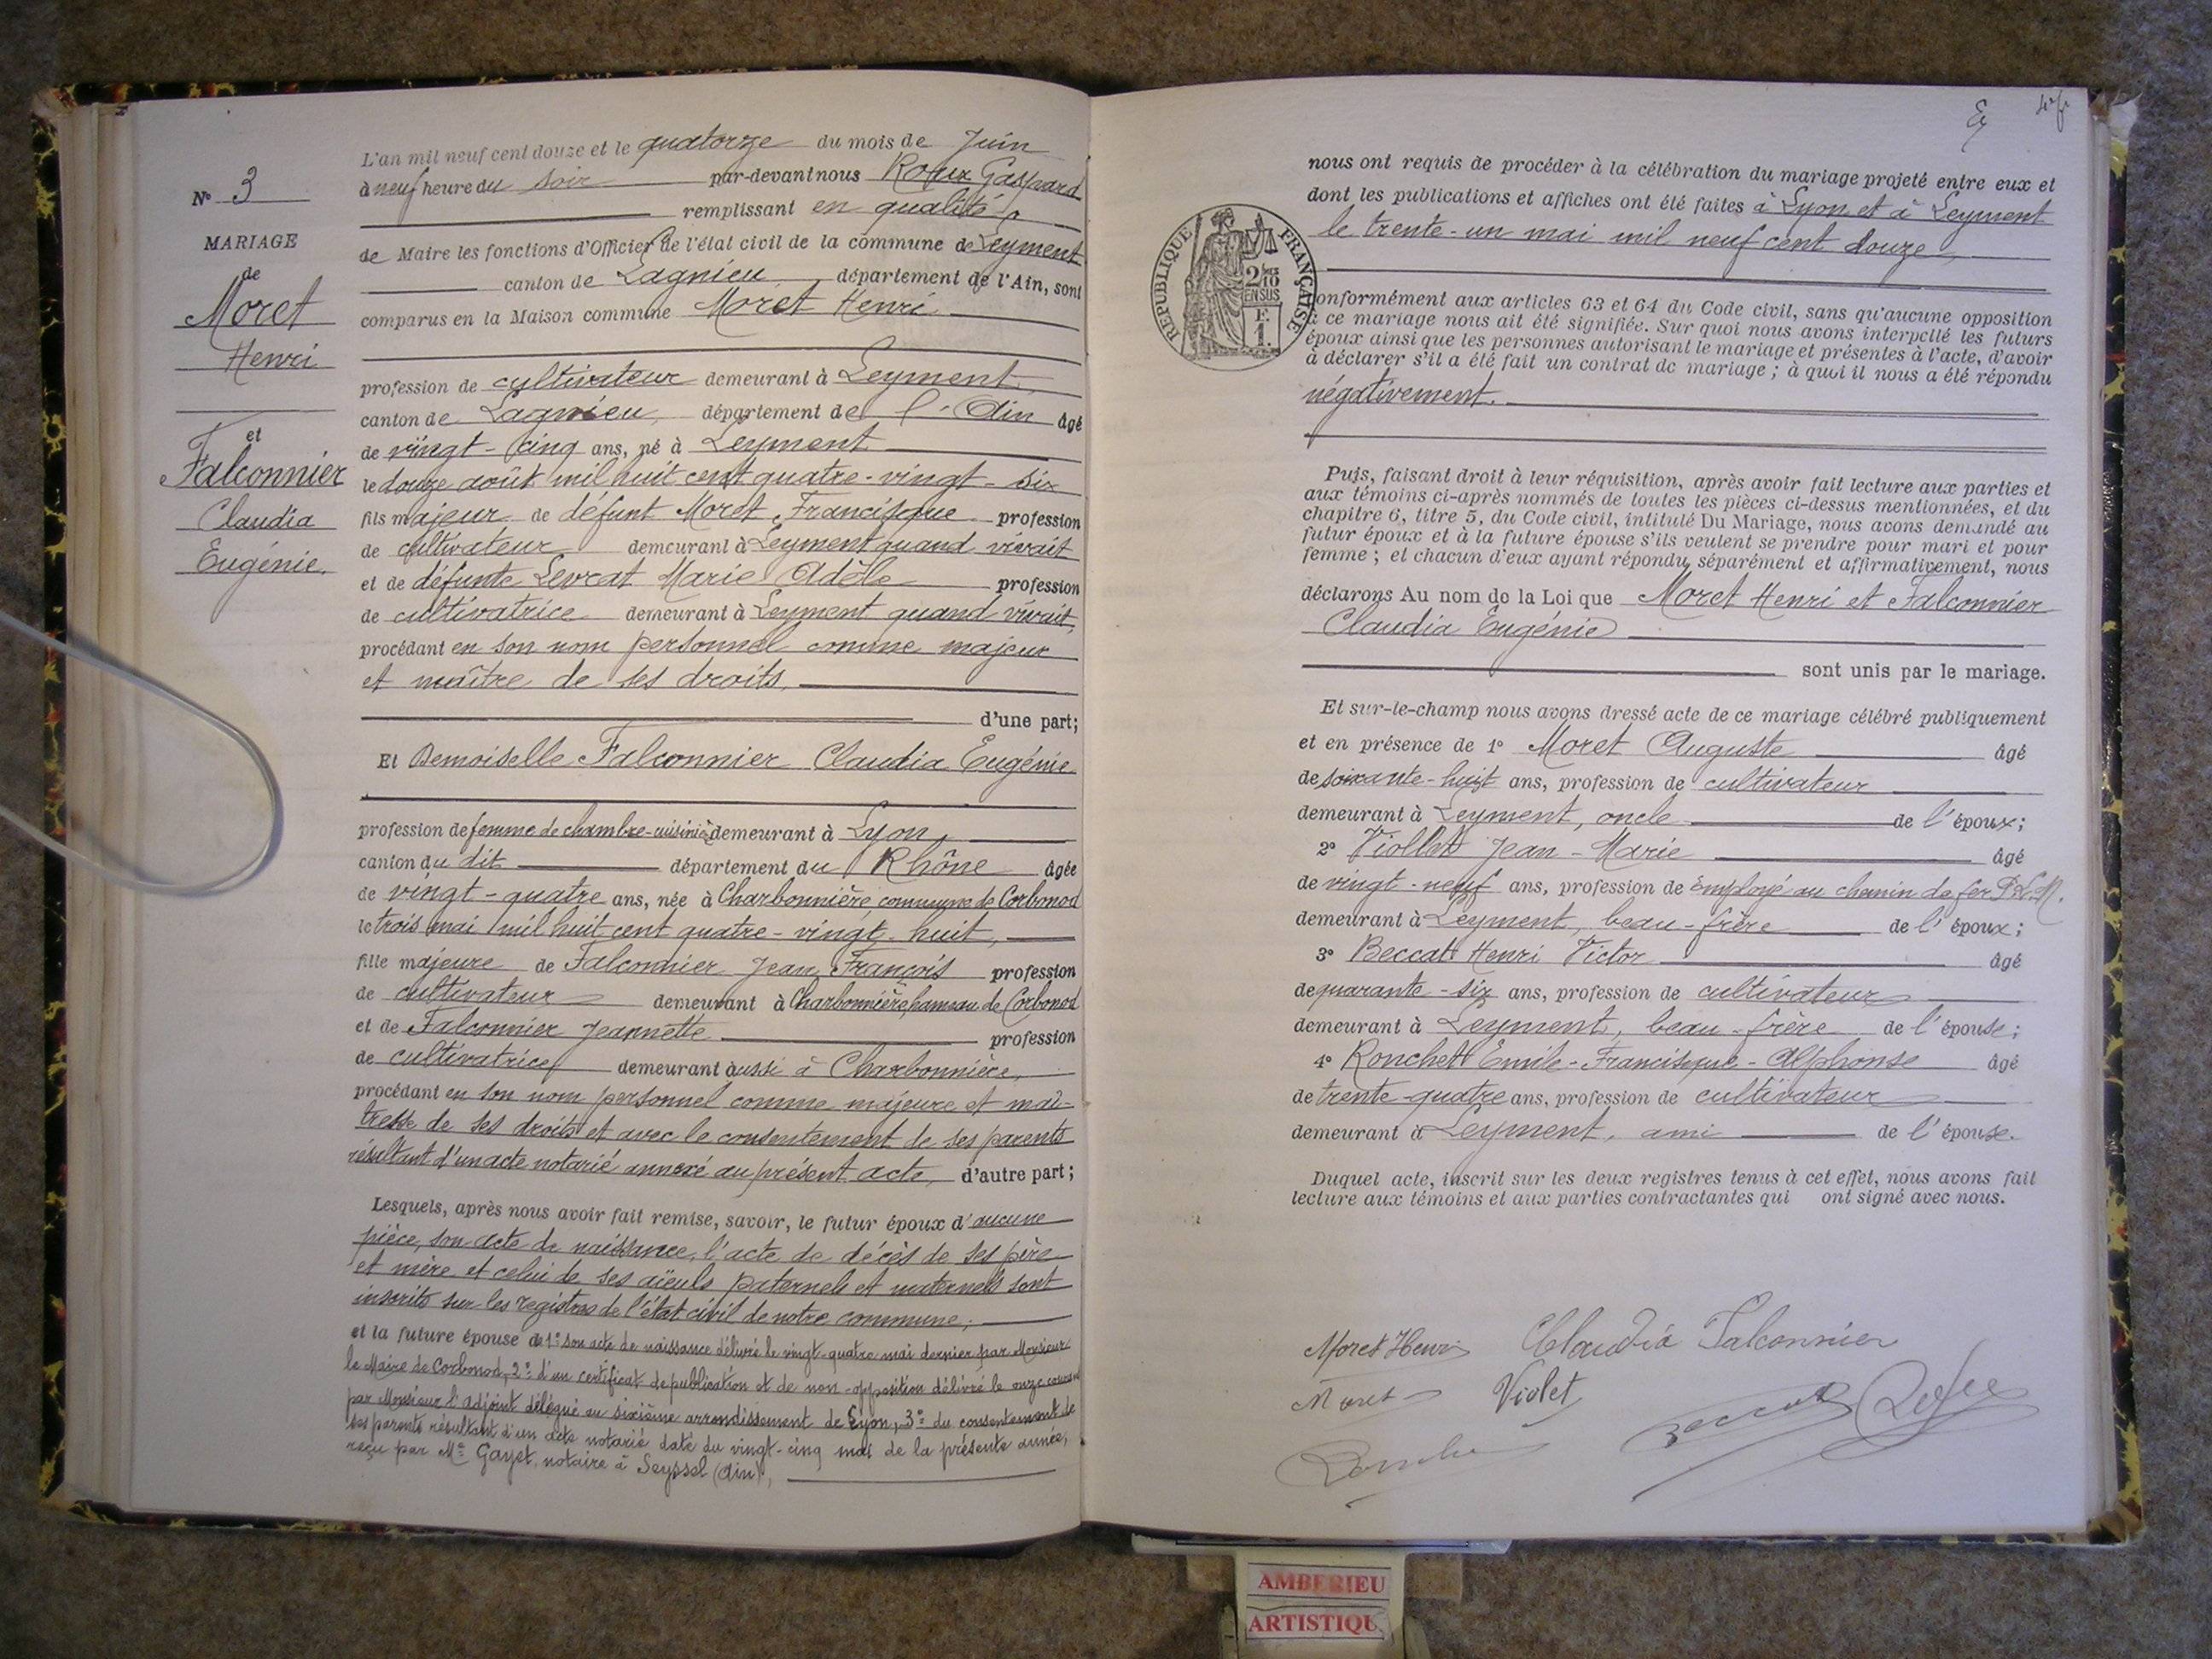 N° 3
MARIAGE
de
Moret
Henri
et
Falconnier
Claudia
Eugénie.
L'an mil neuf cent douze et le quatorze du mois de Juin
à neuf heure du soir par-devant nous Roux Gaspard
remplissant en qualité
de Maire les fonctions d'Officier de l'état civil de la commune de Leyment
canton de Lagnieu département de l'Ain, sont
comparus en la Maison commune Moret Henri
profession de cultivateur demeurant à Leyment
canton de Lagnieu, département de l'Ain âgé
de vingt-cinq ans, né à Leyment
le douze août mil huit cent quatre-vingt-six
fils majeur de défunt Moret Francisque profession
de cultivateur demeurant à Leyment quand vivait
et de défunte Levrat Marie Adèle profession
de cultivatrice demeurant à Leyment quand vivait,
procédant en son nom personnel comme majeur
et maître de ses droits,
d'une part;
Et Demoiselle Falconnier Claudia Eugénie
profession de femme de chambre-cuisinière demeurant à Lyon,
canton du dit département du Rhône âgée
de vingt-quatre ans, née à Charbonnière, commune de Corbonod
le trois mai mil huit cent quatre-vingt-huit,
fille majeure de Falconnier Jean François profession
de cultivateur demeurant à Charbonnière, hameau de Corbonod
et de Falconnier Jeannette profession
de cultivatrice demeurant aussi à Charbonnière,
procédant en son nom personnel comme majeure et maî-
tresse de ses droits et avec le consentement de ses parents
résultant d'un acte notarié annexé au présent acte, d'autre part;
Lesquels, après nous avoir fait remise, savoir, le futur époux d'aucune
pièce, son acte de naissance, l'acte de décès de ses père
et mère et celui de ses aïeuls paternels et maternels sont
inscrits sur les registres de l'état civil de notre commune;
et la future épouse de 1° son acte de naissance délivré le vingt-quatre mai dernier par Monsieur
le Maire de Corbonod, 2° d'un certificat de publication et de non-opposition délivré le onze courant
par Monsieur l'adjoint délégué au sixième arrondissement de Lyon, 3° du consentement de
ses parents résultant d'un acte notarié daté du vingt-cinq mai de la présente année,
reçu par Me Gayet, notaire à Seyssel (Ain),
nous ont requis de procéder à la célébration du mariage projeté entre eux et
dont les publications et affiches ont été faites à Lyon et à Leyment
le trente-un mai mil neuf cent douze
RÉPUBLIQUE FRANÇAISE
2/10
EN SUS
F.
1.
onformément aux articles 63 et 64 du Code civil, sans qu'aucune opposition
à ce mariage nous ait été signifiée. Sur quoi nous avons interpellé les futurs
époux ainsi que les personnes autorisant le mariage et présentes à l'acte, d'avoir
à déclarer s'il a été fait un contrat de mariage; à quoi il nous a été répondu
négativement.
Puis, faisant droit à leur réquisition, après avoir fait lecture aux parties et
aux témoins ci-après nommés de toutes les pièces ci-dessus mentionnées, et du
chapitre 6, titre 5, du Code civil, intitulé Du Mariage, nous avons demandé au
futur époux et à la future épouse s'ils veulent se prendre pour mari et pour
femme; et chacun d'eux ayant répondu séparément et affirmativement, nous
déclarons Au nom de la Loi que Moret Henri et Falconnier
Claudia Eugénie
sont unis par le mariage.
Et sur-le-champ nous avons dressé acte de ce mariage célébré publiquement
et en présence de 1° Moret Auguste âgé
de soixante-huit ans, profession de cultivateur
demeurant à Leyment, oncle de l'époux;
2° Viollet Jean-Marie âgé
de vingt-neuf ans, profession de employé au chemin de fer P.L.M.
demeurant à Leyment, beau-frère de l'époux;
3° Beccat Henri Victor âgé
de quarante-six ans, profession de cultivateur
demeurant à Leyment, beau-frère de l'épouse;
4° Ronchet Emile-Francisque-Alphonse âgé
de trente-quatre ans, profession de cultivateur
demeurant à Leyment, ami de l'épouse.
Duquel acte, inscrit sur les deux registres tenus à cet effet, nous avons fait
lecture aux témoins et aux parties contractantes qui ont signé avec nous.
Moret Henri Claudia Falconnier
Moret Violet
Beccat
AMBERIEU
ARTISTIQU